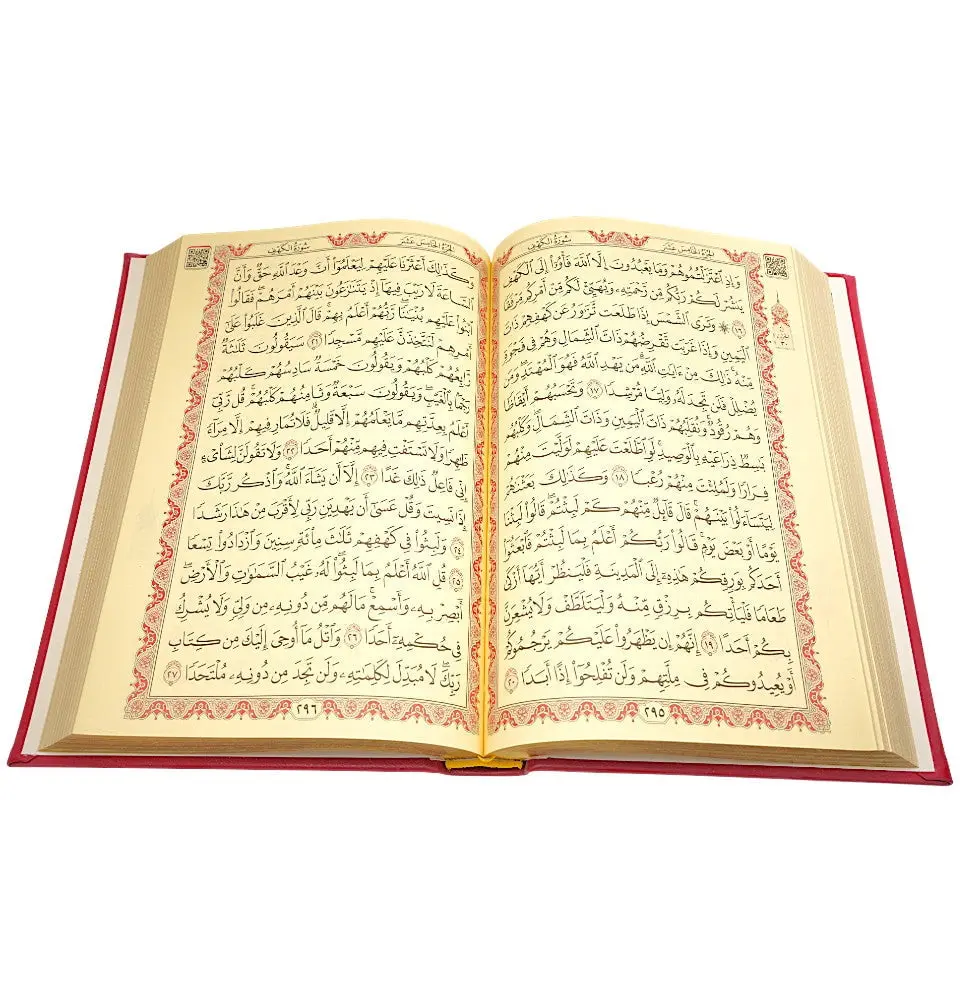 الجزء الخامس عشر
سورة الكهف
وَإِذِ ٱعْتَزَلْتُمُوهُمْ وَمَا يَعْبُدُونَ إِلَّا ٱللَّهَ فَأْوُۥٓا۟ إِلَى ٱلْكَهْفِ
يَنشُرْ لَكُمْ رَبُّكُم مِّن رَّحْمَتِهِۦ وَيُهَيِّئْ لَكُم مِّنْ أَمْرِكُم مِّرْفَقًا
١٦ ۞ وَتَرَى ٱلشَّمْسَ إِذَا طَلَعَت تَّزَٰوَرُ عَن كَهْفِهِمْ ذَاتَ
ٱلْيَمِينِ وَإِذَا غَرَبَت تَّقْرِضُهُمْ ذَاتَ ٱلشِّمَالِ وَهُمْ فِى فَجْوَةٍ
مِّنْهُ ۚ ذَٰلِكَ مِنْ ءَايَٰتِ ٱللَّهِ ۗ مَن يَهْدِ ٱللَّهُ فَهُوَ ٱلْمُهْتَدِ ۖ وَمَن
يُضْلِلْ فَلَن تَجِدَ لَهُۥ وَلِيًّا مُّرْشِدًا ١٧ وَتَحْسَبُهُمْ أَيْقَاظًا
وَهُمْ رُقُودٌ ۚ وَنُقَلِّبُهُمْ ذَاتَ ٱلْيَمِينِ وَذَاتَ ٱلشِّمَالِ ۖ وَكَلْبُهُم
بَٰسِطٌ ذِرَاعَيْهِ بِٱلْوَصِيدِ ۚ لَوِ ٱطَّلَعْتَ عَلَيْهِمْ لَوَلَّيْتَ مِنْهُمْ
فِرَارًا وَلَمُلِئْتَ مِنْهُمْ رُعْبًا ١٨ وَكَذَٰلِكَ بَعَثْنَٰهُمْ
لِيَتَسَآءَلُوا۟ بَيْنَهُمْ ۚ قَالَ قَآئِلٌ مِّنْهُمْ كَمْ لَبِثْتُمْ ۖ قَالُوا۟ لَبِثْنَا
يَوْمًا أَوْ بَعْضَ يَوْمٍ ۚ قَالُوا۟ رَبُّكُمْ أَعْلَمُ بِمَا لَبِثْتُمْ فَٱبْعَثُوٓا۟
أَحَدَكُم بِوَرِقِكُمْ هَٰذِهِۦٓ إِلَى ٱلْمَدِينَةِ فَلْيَنظُرْ أَيُّهَآ أَزْكَىٰ
طَعَامًا فَلْيَأْتِكُم بِرِزْقٍ مِّنْهُ وَلْيَتَلَطَّفْ وَلَا يُشْعِرَنَّ
بِكُمْ أَحَدًا ١٩ إِنَّهُمْ إِن يَظْهَرُوا۟ عَلَيْكُمْ يَرْجُمُوكُمْ
أَوْ يُعِيدُوكُمْ فِى مِلَّتِهِمْ وَلَن تُفْلِحُوٓا۟ إِذًا أَبَدًا ٢٠
٢٩٥
الجزء الخامس عشر
سورة الكهف
وَكَذَٰلِكَ أَعْثَرْنَا عَلَيْهِمْ لِيَعْلَمُوٓا۟ أَنَّ وَعْدَ ٱللَّهِ حَقٌّ وَأَنَّ
ٱلسَّاعَةَ لَا رَيْبَ فِيهَآ إِذْ يَتَنَٰزَعُونَ بَيْنَهُمْ أَمْرَهُمْ ۖ فَقَالُوا۟
ٱبْنُوا۟ عَلَيْهِم بُنْيَٰنًا ۖ رَّبُّهُمْ أَعْلَمُ بِهِمْ ۚ قَالَ ٱلَّذِينَ غَلَبُوا۟ عَلَىٰٓ
أَمْرِهِمْ لَنَتَّخِذَنَّ عَلَيْهِم مَّسْجِدًا ٢١ سَيَقُولُونَ ثَلَٰثَةٌ
رَّابِعُهُمْ كَلْبُهُمْ وَيَقُولُونَ خَمْسَةٌ سَادِسُهُمْ كَلْبُهُمْ
رَجْمًۢا بِٱلْغَيْبِ ۖ وَيَقُولُونَ سَبْعَةٌ وَثَامِنُهُمْ كَلْبُهُمْ ۚ قُل رَّبِّىٓ
أَعْلَمُ بِعِدَّتِهِم مَّا يَعْلَمُهُمْ إِلَّا قَلِيلٌ ۗ فَلَا تُمَارِ فِيهِمْ إِلَّا مِرَآءً
ظَٰهِرًا وَلَا تَسْتَفْتِ فِيهِم مِّنْهُمْ أَحَدًا ٢٢ وَلَا تَقُولَنَّ لِشَا۟ىْءٍ
إِنِّى فَاعِلٌ ذَٰلِكَ غَدًا ٢٣ إِلَّآ أَن يَشَآءَ ٱللَّهُ ۚ وَٱذْكُر رَّبَّكَ
إِذَا نَسِيتَ وَقُلْ عَسَىٰٓ أَن يَهْدِيَنِ رَبِّى لِأَقْرَبَ مِنْ هَٰذَا رَشَدًا
٢٤ وَلَبِثُوا۟ فِى كَهْفِهِمْ ثَلَٰثَ مِا۟ئَةٍ سِنِينَ وَٱزْدَادُوا۟ تِسْعًا
٢٥ قُلِ ٱللَّهُ أَعْلَمُ بِمَا لَبِثُوا۟ ۖ لَهُۥ غَيْبُ ٱلسَّمَٰوَٰتِ وَٱلْأَرْضِ ۖ
أَبْصِرْ بِهِۦ وَأَسْمِعْ ۚ مَا لَهُم مِّن دُونِهِۦ مِن وَلِىٍّ وَلَا يُشْرِكُ
فِى حُكْمِهِۦٓ أَحَدًا ٢٦ وَٱتْلُ مَآ أُوحِىَ إِلَيْكَ مِن كِتَابِ
رَبِّكَ ۖ لَا مُبَدِّلَ لِكَلِمَٰتِهِۦ وَلَن تَجِدَ مِن دُونِهِۦ مُلْتَحَدًا ٢٧
٢٩٦